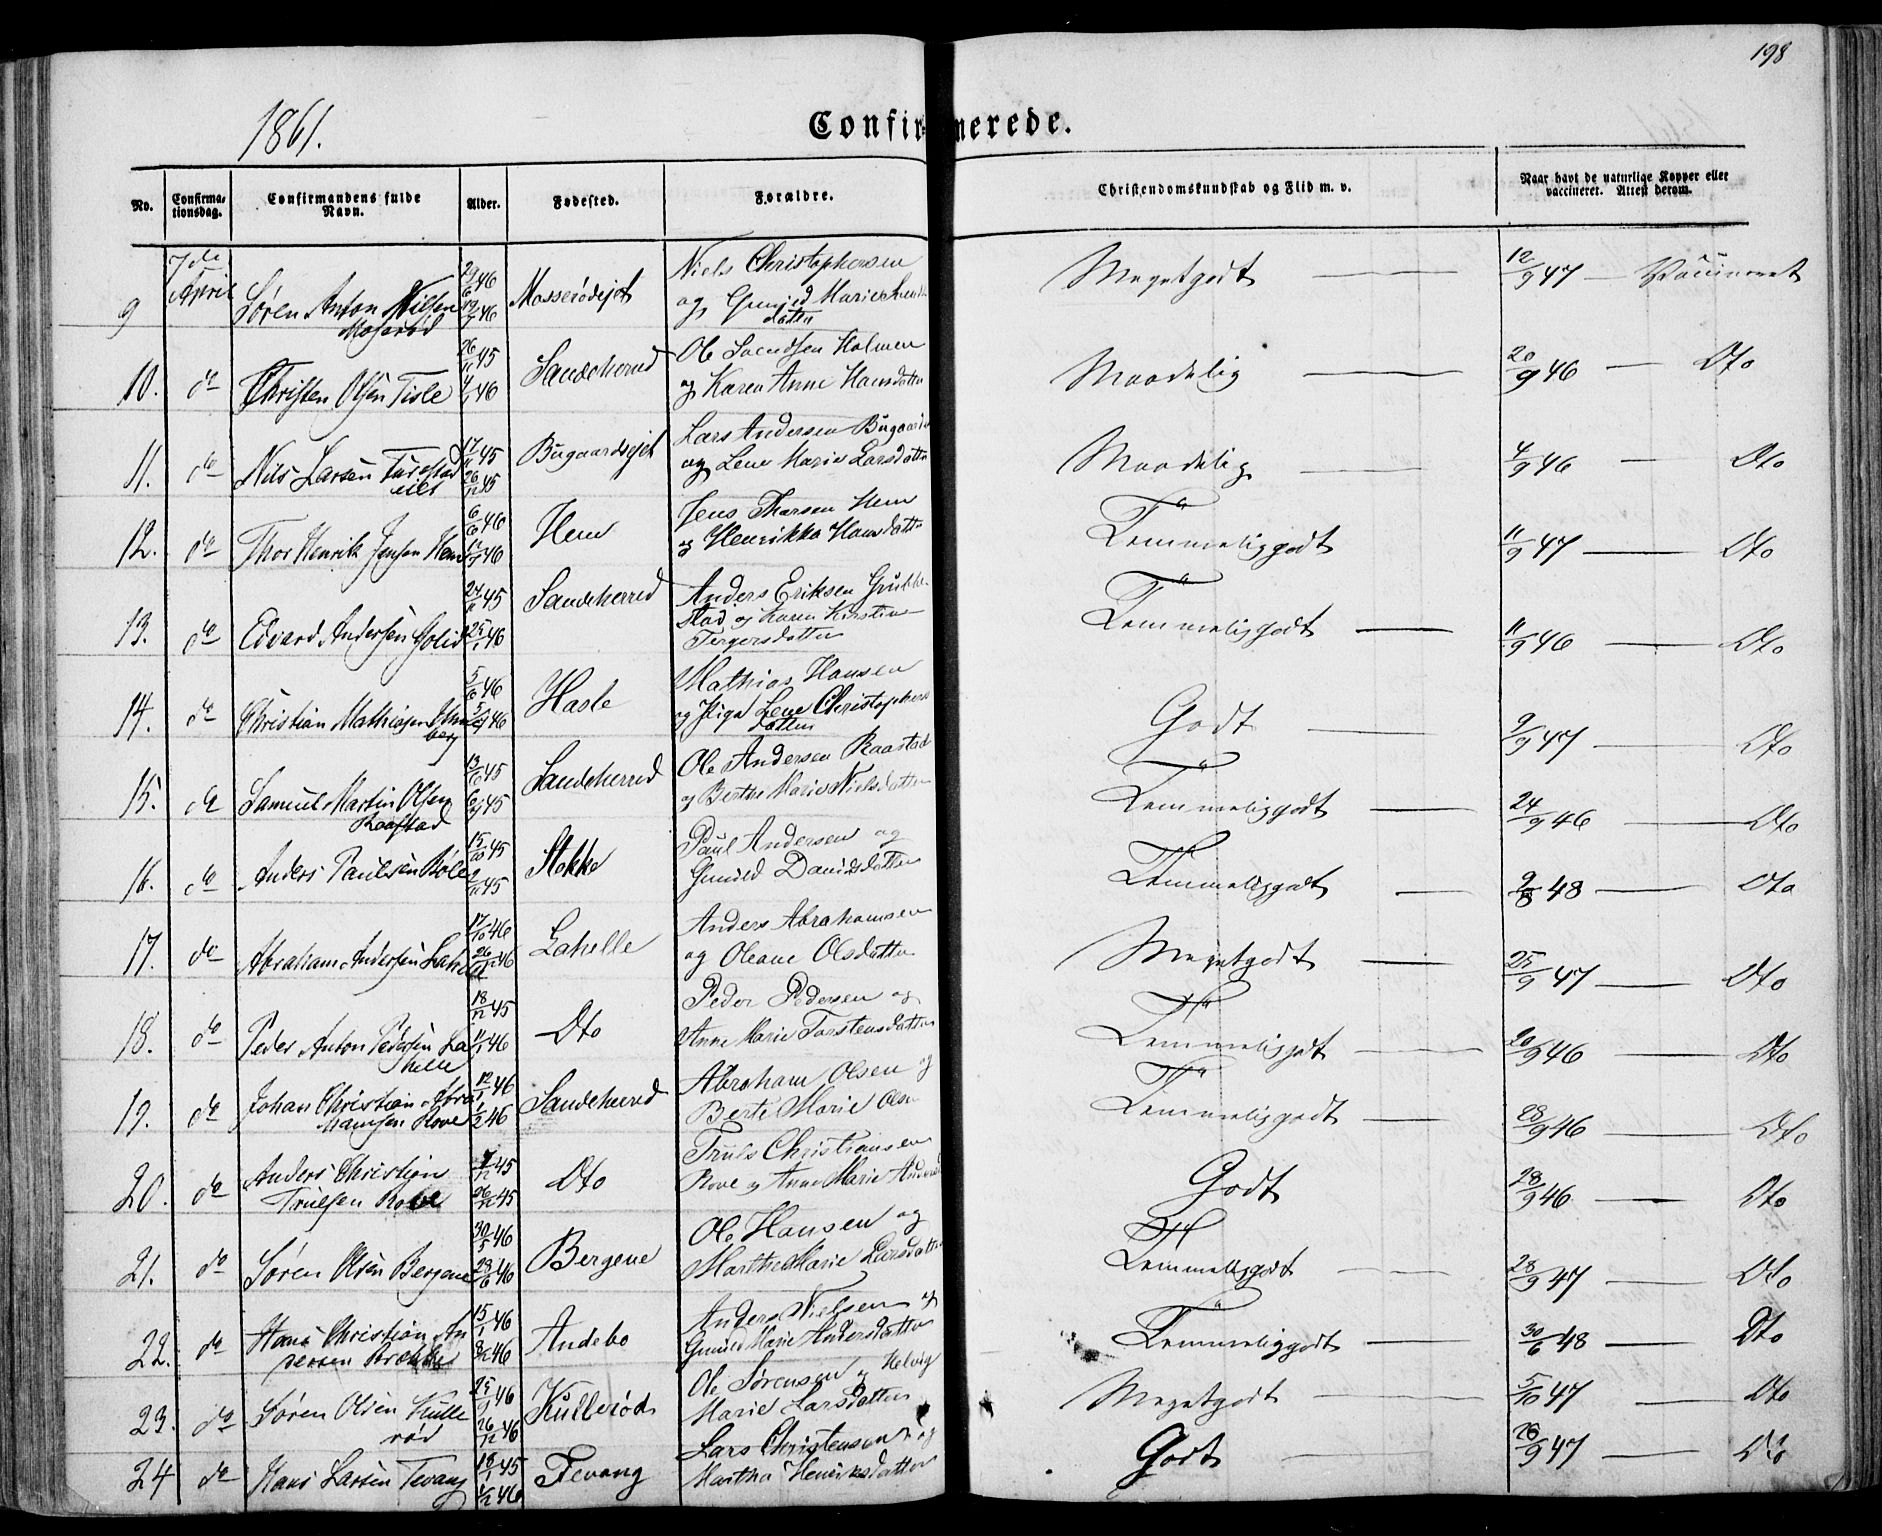 198
1861.
Confirmerede.
No.
Confirma-
tionsdag.
Confirmandens fulde
Navn.
Alder.
Fødested.
Forældre.
Christendomskundskab og Flid m. v.
Naar havt de naturlige Kopper eller
vaccineret. Attest derom.
7de
April
9 Søren Anton Nilsen
Moserød
Niels Christophersen
og Gunild Marie
datter
Megetgodt 12/9 47 — Vaccineret
10. do Christen Olsen Tisle 26/11 45 4/1 46 Sandeherred
Ole Svendsen Holmen
og Karen Anne Hansdatter
Maadelig 20/9 46 — Dto
11. do Nils Larsen 17/11 45 26/12 45 Bugaardsejet
Lars Andersen Bugaards
og Lene Marie Larsdatter
Maadelig 4/9 46 — Dto
12. do Thor Henrik Jensen Hem 6/6 46 Hem
Jens Thorsen Hem
og Henrikke Hansdatter
Temmeliggodt 11/9 47 — Dto
13. do Edvard Andersen 24/11 45 25/1 46 Sandeherred
Anders Eriksen
stad og Karen Kirstine
datter
Temmeliggodt 11/9 46 — Dto
14. do Christian Mathiasen
berg
5/6 46 Hasle
Mathias Hansen
og Lene Christophers
datter
Godt 9/9 47 — Dto
15. do Samuel Martin Olsen
Raastad
13/10 45 Sandeherred
Ole Andersen Raastad
og Berthe Marie Nielsdatter
Temmeliggodt 24/9 46 — Dto
16. do Anders Paulsen 15/10 45 Stokke
Paul Andersen og
Gunild Davidsdatter
Temmeliggodt 9/8 48 — Dto
17. do Abraham Andersen Lahelle 17/10 46 26/12 46 Lahelle
Anders Abrahamsen
og Oleane Olsdatter
Megetgodt 25/9 47 — Dto
18. do Peder Anton Pedersen La
helle
18/12 45 Dto
Peder Pedersen og
Anne Marie Torstensdatter
Temmeliggodt 20/9 46 — Dto
19. do Johan Christian Abra
hamsen Rove
12/1 46 1/2 46 Sandeherred
Abraham Olsen og
Berte Marie Ols
Temmeliggodt 28/9 46 — Dto
20. do Anders Christian
Truelsen Rove
26/12 45 Dto
Truls Christiansen
Rove og Anne Marie Anders
Godt 28/9 46 — Dto
21. do Søren Olsen Bergene 30/5 46 28/6 46 Bergene
Ole Hansen og
Marthe Marie Larsdatter
Temmeliggodt 28/9 47 — Dto
22. do Hans Christian An
dersen
15/1 46 Andebo
Anders Nielsen og
Gunild Marie Andersdatter
Temmeliggodt 30/6 48 — Dto
23. do Søren Olsen Kulle
rød
25/9 46 26/12 46 Kullerød
Ole Sørensen og Helvig
Marie Larsdatter
Megetgodt 5/10 47 — Dto
24 do Hans Larsen Fevang Fevang
Lars Christensen og
Martha Henriksdatter
Godt 28/9 47 — Dto